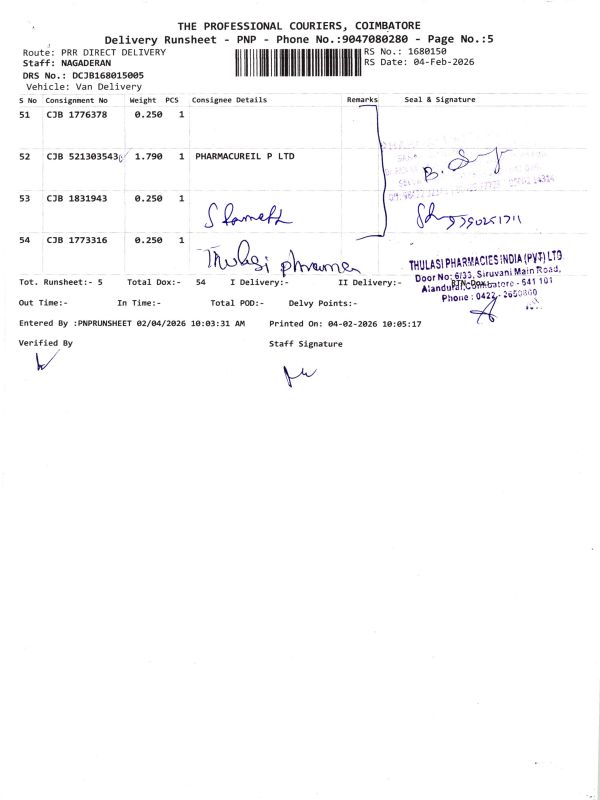 THE PROFESSIONAL COURIERS, COIMBATORE
Delivery Runsheet - PNP - Phone No.:9047080280 - Page No.:5
Route: PRR DIRECT DELIVERY
RS No.: 1680150
Staff: NAGADERAN
RS Date: 04-Feb-2026
DRS No.: DCJB168015005
Vehicle: Van Delivery
S No Consignment No Weight PCS Consignee Details Remarks Seal & Signature
51 CJB 1776378 0.250 1
52 CJB 521303543 1.790 1 PHARMACUREIL P LTD
53 CJB 1831943 0.250 1
54 CJB 1773316 0.250 1 Thulasi pharma
THULASI PHARMACIES INDIA (PVT) LTD
Door No: 6/33, Siruvani Main Road,
Alandurai, Coimbatore - 641 101
Phone : 0422 - 2650860
Tot. Runsheet:- 5 Total Dox:- 54 I Delivery:- II Delivery:-
Out Time:- In Time:- Total POD:- Delvy Points:-
Entered By :PNPRUNSHEET 02/04/2026 10:03:31 AM Printed On: 04-02-2026 10:05:17
Verified By Staff Signature